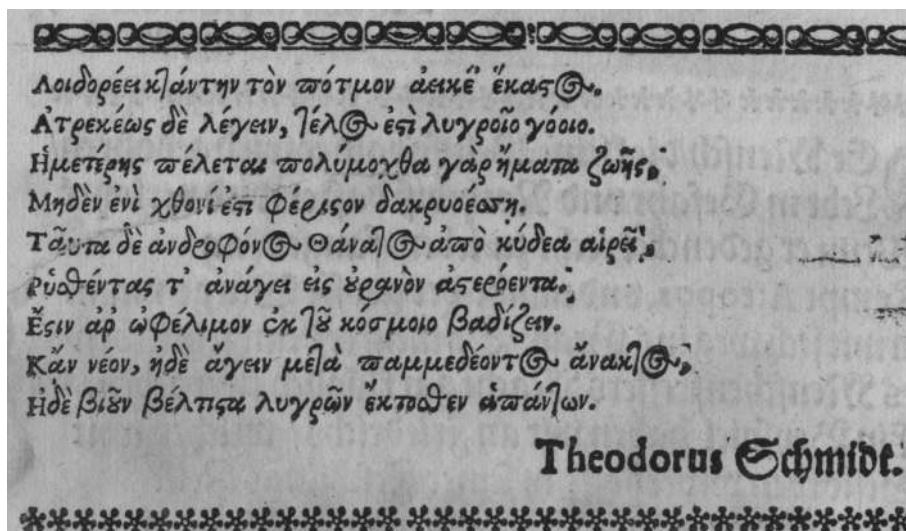 Λοιδορέει κ̓ ἄντην τὸν πότμον ἀεικέ' ἕκαστος.
Ἀτρεκέως δὲ λέγειν, τέλος ἐστὶ λυγροῖο γόοιο.
Ἡμετέρης πέλεται πολύμοχθα γὰρ ἤματα ζωῆς,
Μηδὲν ἐνὶ χθονί ἐστι φέριστον δακρυοέσση.
Ταῦτα δὲ ἀνδροφόνος Θάνατος ἀπὸ κύδεα αἱρεῖ,
Ῥυσθέντας τ' ἀνάγει εἰς οὐρανὸν ἀστερόεντα.
Ἔστιν ἀρ ὠφέλιμον ἐκ τοῦ κόσμοιο βαδίζειν.
Κἂν νέον, ἠδὲ ἄγειν μετὰ παμμεδέοντος ἄνακτος,
Ἠδὲ βιοῦν βέλτιστα λυγρῶν ἔκτοσθεν ἁπάντων.
Theodorus Schmidt.